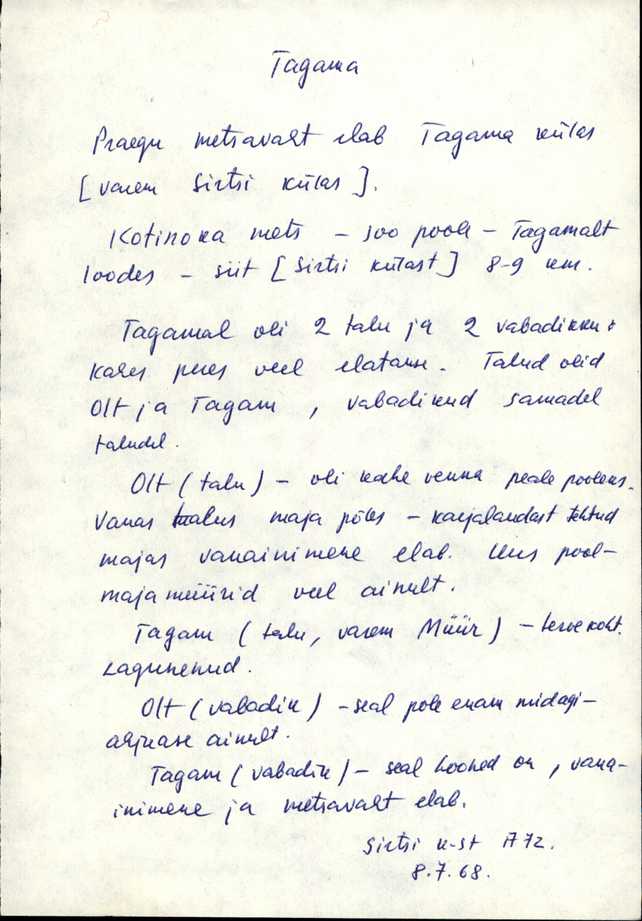 Tagama
Praegu metsavaht elab Tagama külas
[varem Sirtsi külas].
Kotinoka mets – soo poole – Tagamalt
loodes – siit [Sirtsi külast] 8-9 km.
Tagamal oli 2 talu ja 2 vabadikku;
kahes peres veel elatakse. Talud olid
Olt ja Tagam, vabadikud samadel
taludel.
Olt (talu) – oli kahe venna peale pooleks.
Vanas talus maja põles – karjalaudast tehtud
majas vanainimene elab. Uus pool –
maja müürid veel ainult.
Tagam (talu, varem Müür) – terve koht.
Lagunenud.
Olt (vabadik) – seal pole enam midagi –
ahjuase ainult.
Tagam (vabadik) – seal hooned on, vana-
inimene ja metsavaht elab.
Sirtsi k-st A 72.
8.7.68.